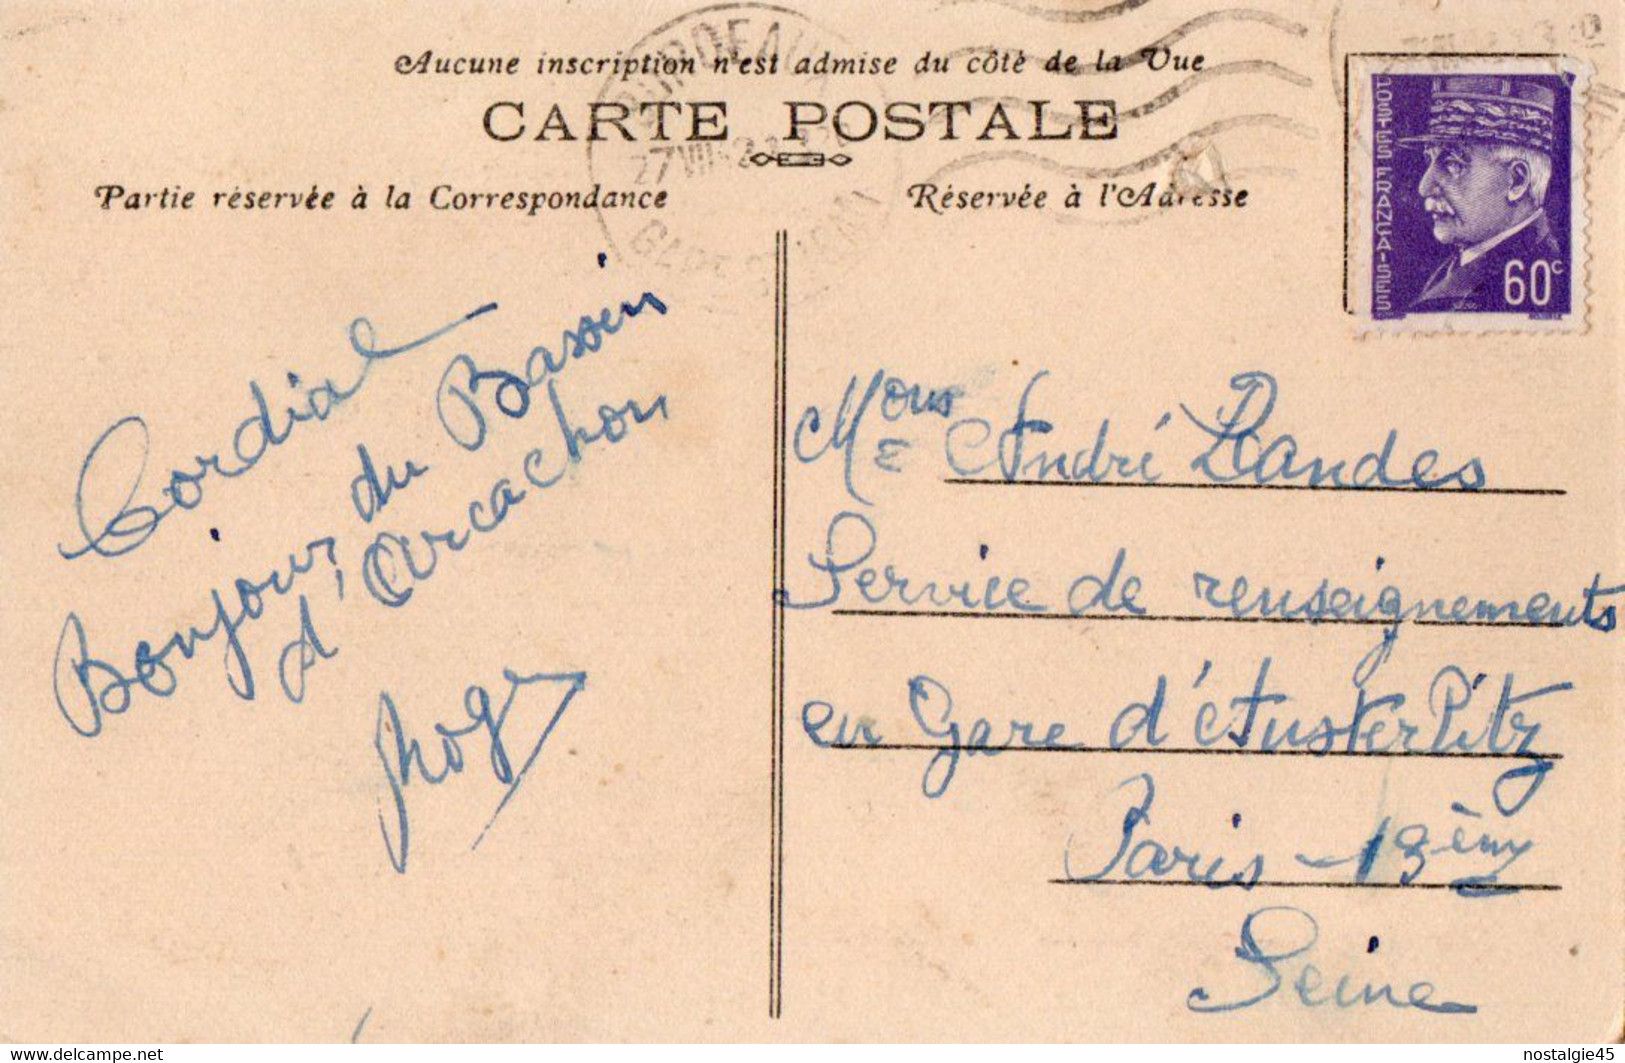 Aucune inscription n'est admise du côté de la Vue
CARTE POSTALE
Partie réservée à la Correspondance
Réservée à l'Adresse
BORDEAUX
27 VII
POSTES FRANÇAISES
60c
Cordial
Bonjour du Bassin
d'Arcachon
Roger
Mons
Me André Landes
Service de renseignements
en Gare d'Austerlitz
Paris - 13ème
Seine
nostalgie45